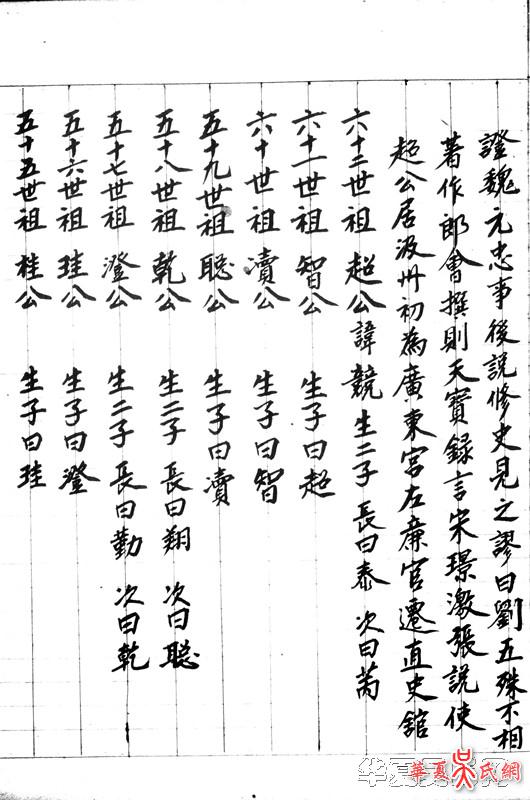 五十五世祖 桂公 生子曰珪
五十六世祖 珪公 生子曰澄
五十七世祖 澄公 生二子 長曰勤 次曰乾
五十八世祖 乾公 生二子 長曰翔 次曰聡
五十九世祖 聡公 生子曰瀆
六十世祖 瀆公 生子曰智
六十一世祖 智公 生子曰超
六十二世祖 超公 諱競 生二子 長曰泰 次曰芮
超公居汲州初為廣東宮左亷官遷直史館
著作郎會撰則天實録言宋璟激張說使
證魏元忠事後說修史見之謬曰劉五殊不相
華夏吴氏網